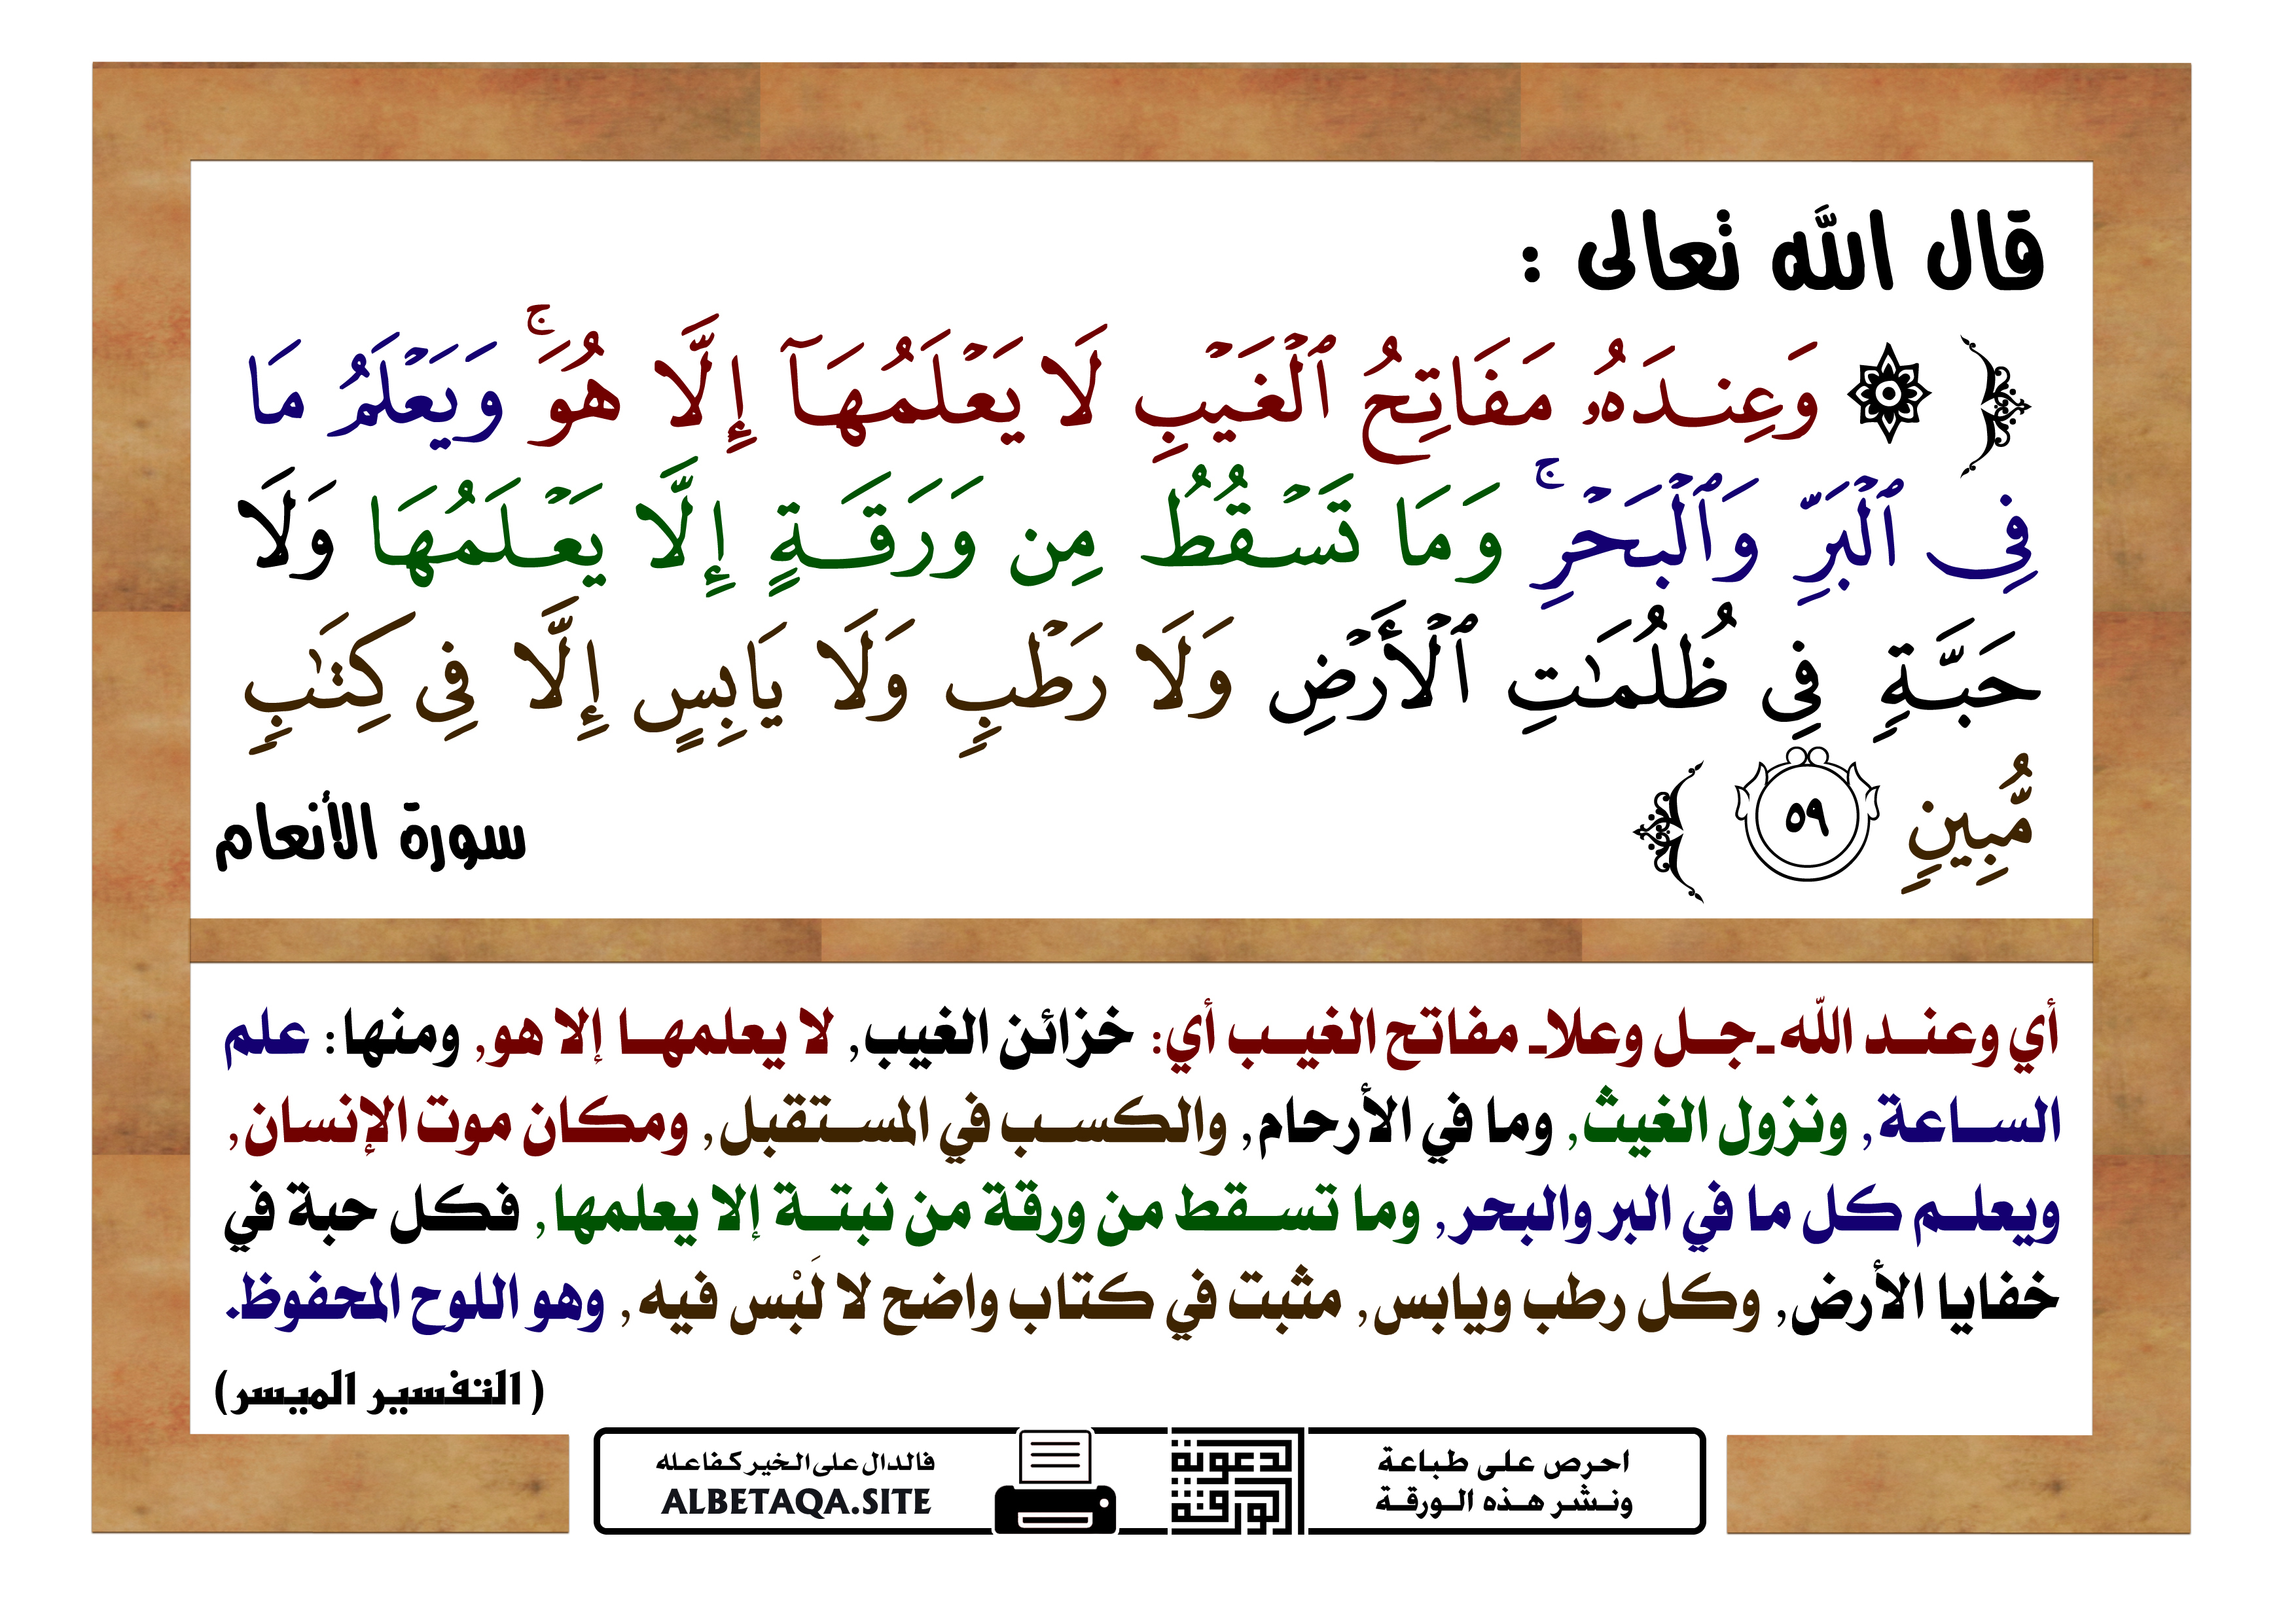 قال الله تعالى :
﴿ ۞ وَعِندَهُۥ مَفَاتِحُ ٱلۡغَيۡبِ لَا يَعۡلَمُهَآ إِلَّا هُوَۚ وَيَعۡلَمُ مَا
فِي ٱلۡبَرِّ وَٱلۡبَحۡرِۚ وَمَا تَسۡقُطُ مِن وَرَقَةٍ إِلَّا يَعۡلَمُهَا وَلَا
حَبَّةٖ فِي ظُلُمَٰتِ ٱلۡأَرۡضِ وَلَا رَطۡبٖ وَلَا يَابِسٍ إِلَّا فِي كِتَٰبٖ
مُّبِينٖ ٥٩ ﴾
سورة الأنعام
أي وعند الله -جل وعلا- مفاتح الغيب أي: خزائن الغيب, لا يعلمها إلا هو, ومنها: علم
الساعة, ونزول الغيث, وما في الأرحام, والكسب في المستقبل, ومكان موت الإنسان,
ويعلم كل ما في البر والبحر, وما تسقط من ورقة من نبتة إلا يعلمها, فكل حبة في
خفايا الأرض, وكل رطب ويابس, مثبت في كتاب واضح لا لَبْس فيه, وهو اللوح المحفوظ.
( التفسير الميسر)
احرص على طباعة
ونشر هذه الورقة
الدعوية
الورقة
فالدال على الخير كفاعله
ALBETAQA.SITE